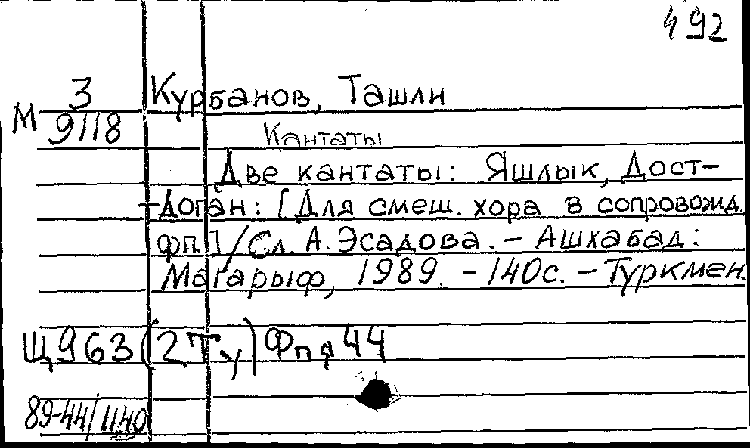 492
З Курбанов, Ташли
М 9118 Кантаты
Две кантаты: Яшлык, Дост-
-Доган: [Для смеш. хора в сопровожд.
фп.]/Сл. А. Эсадова. - Ашхабад:
Магарыф, 1989. - 140с. - Туркмен.
Щ963(2Ту)Фпя44
89-44/1140